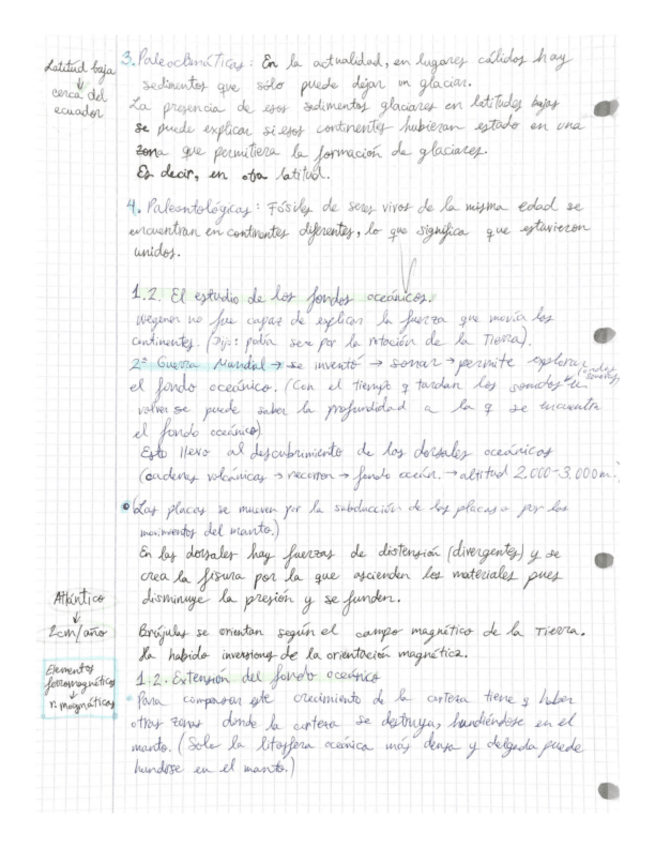 Latitud baja
↓
cerca del
ecuador
3. Paleoclimáticas: En la actualidad, en lugares cálidos hay
sedimentos que sólo puede dejar un glaciar.
La presencia de esos sedimentos glaciares en latitudes bajas
se puede explicar si esos continentes hubieran estado en una
zona que permitiera la formación de glaciares.
Es decir, en otra latitud.
4. Paleontológicas: Fósiles de seres vivos de la misma edad se
encuentran en continentes diferentes, lo que significa que estuvieron
unidos.
1.2. El estudio de los fondos oceánicos.
Wegener no fue capaz de explicar la fuerza que movía los
continentes. (Dijo: podía ser por la rotación de la Tierra).
2ª Guerra Mundial → se inventó → sonar → permite explorar
el fondo oceánico. (Con el tiempo q tardan los sonidos en
(ondas sonoras)
volver se puede saber la profundidad a la q se encuentra
el fondo oceánico)
Esto llevo al descubrimiento de las dorsales oceánicas
(cadenas volcánicas → recorren → fondo oceán. → altitud 2.000-3.000m.
(Las placas se mueven por la subducción de las placas o por los
movimientos del manto.)
En las dorsales hay fuerzas de distensión (divergentes) y se
crea la fisura por la que ascienden los materiales pues
disminuye la presión y se funden.
Atlántico
↓
2cm/año
Brújulas se orientan según el campo magnético de la Tierra.
Ha habido inversiones de la orientación magnética.
Elementos
ferromagnéticos
↓
r. magmáticas
1.2. Extensión del fondo oceánico
Para compensar este crecimiento de la corteza tiene q haber
otras zonas donde la corteza se destruya, hundiéndose en el
manto. (Solo la litosfera oceánica más densa y delgada puede
hundirse en el manto.)